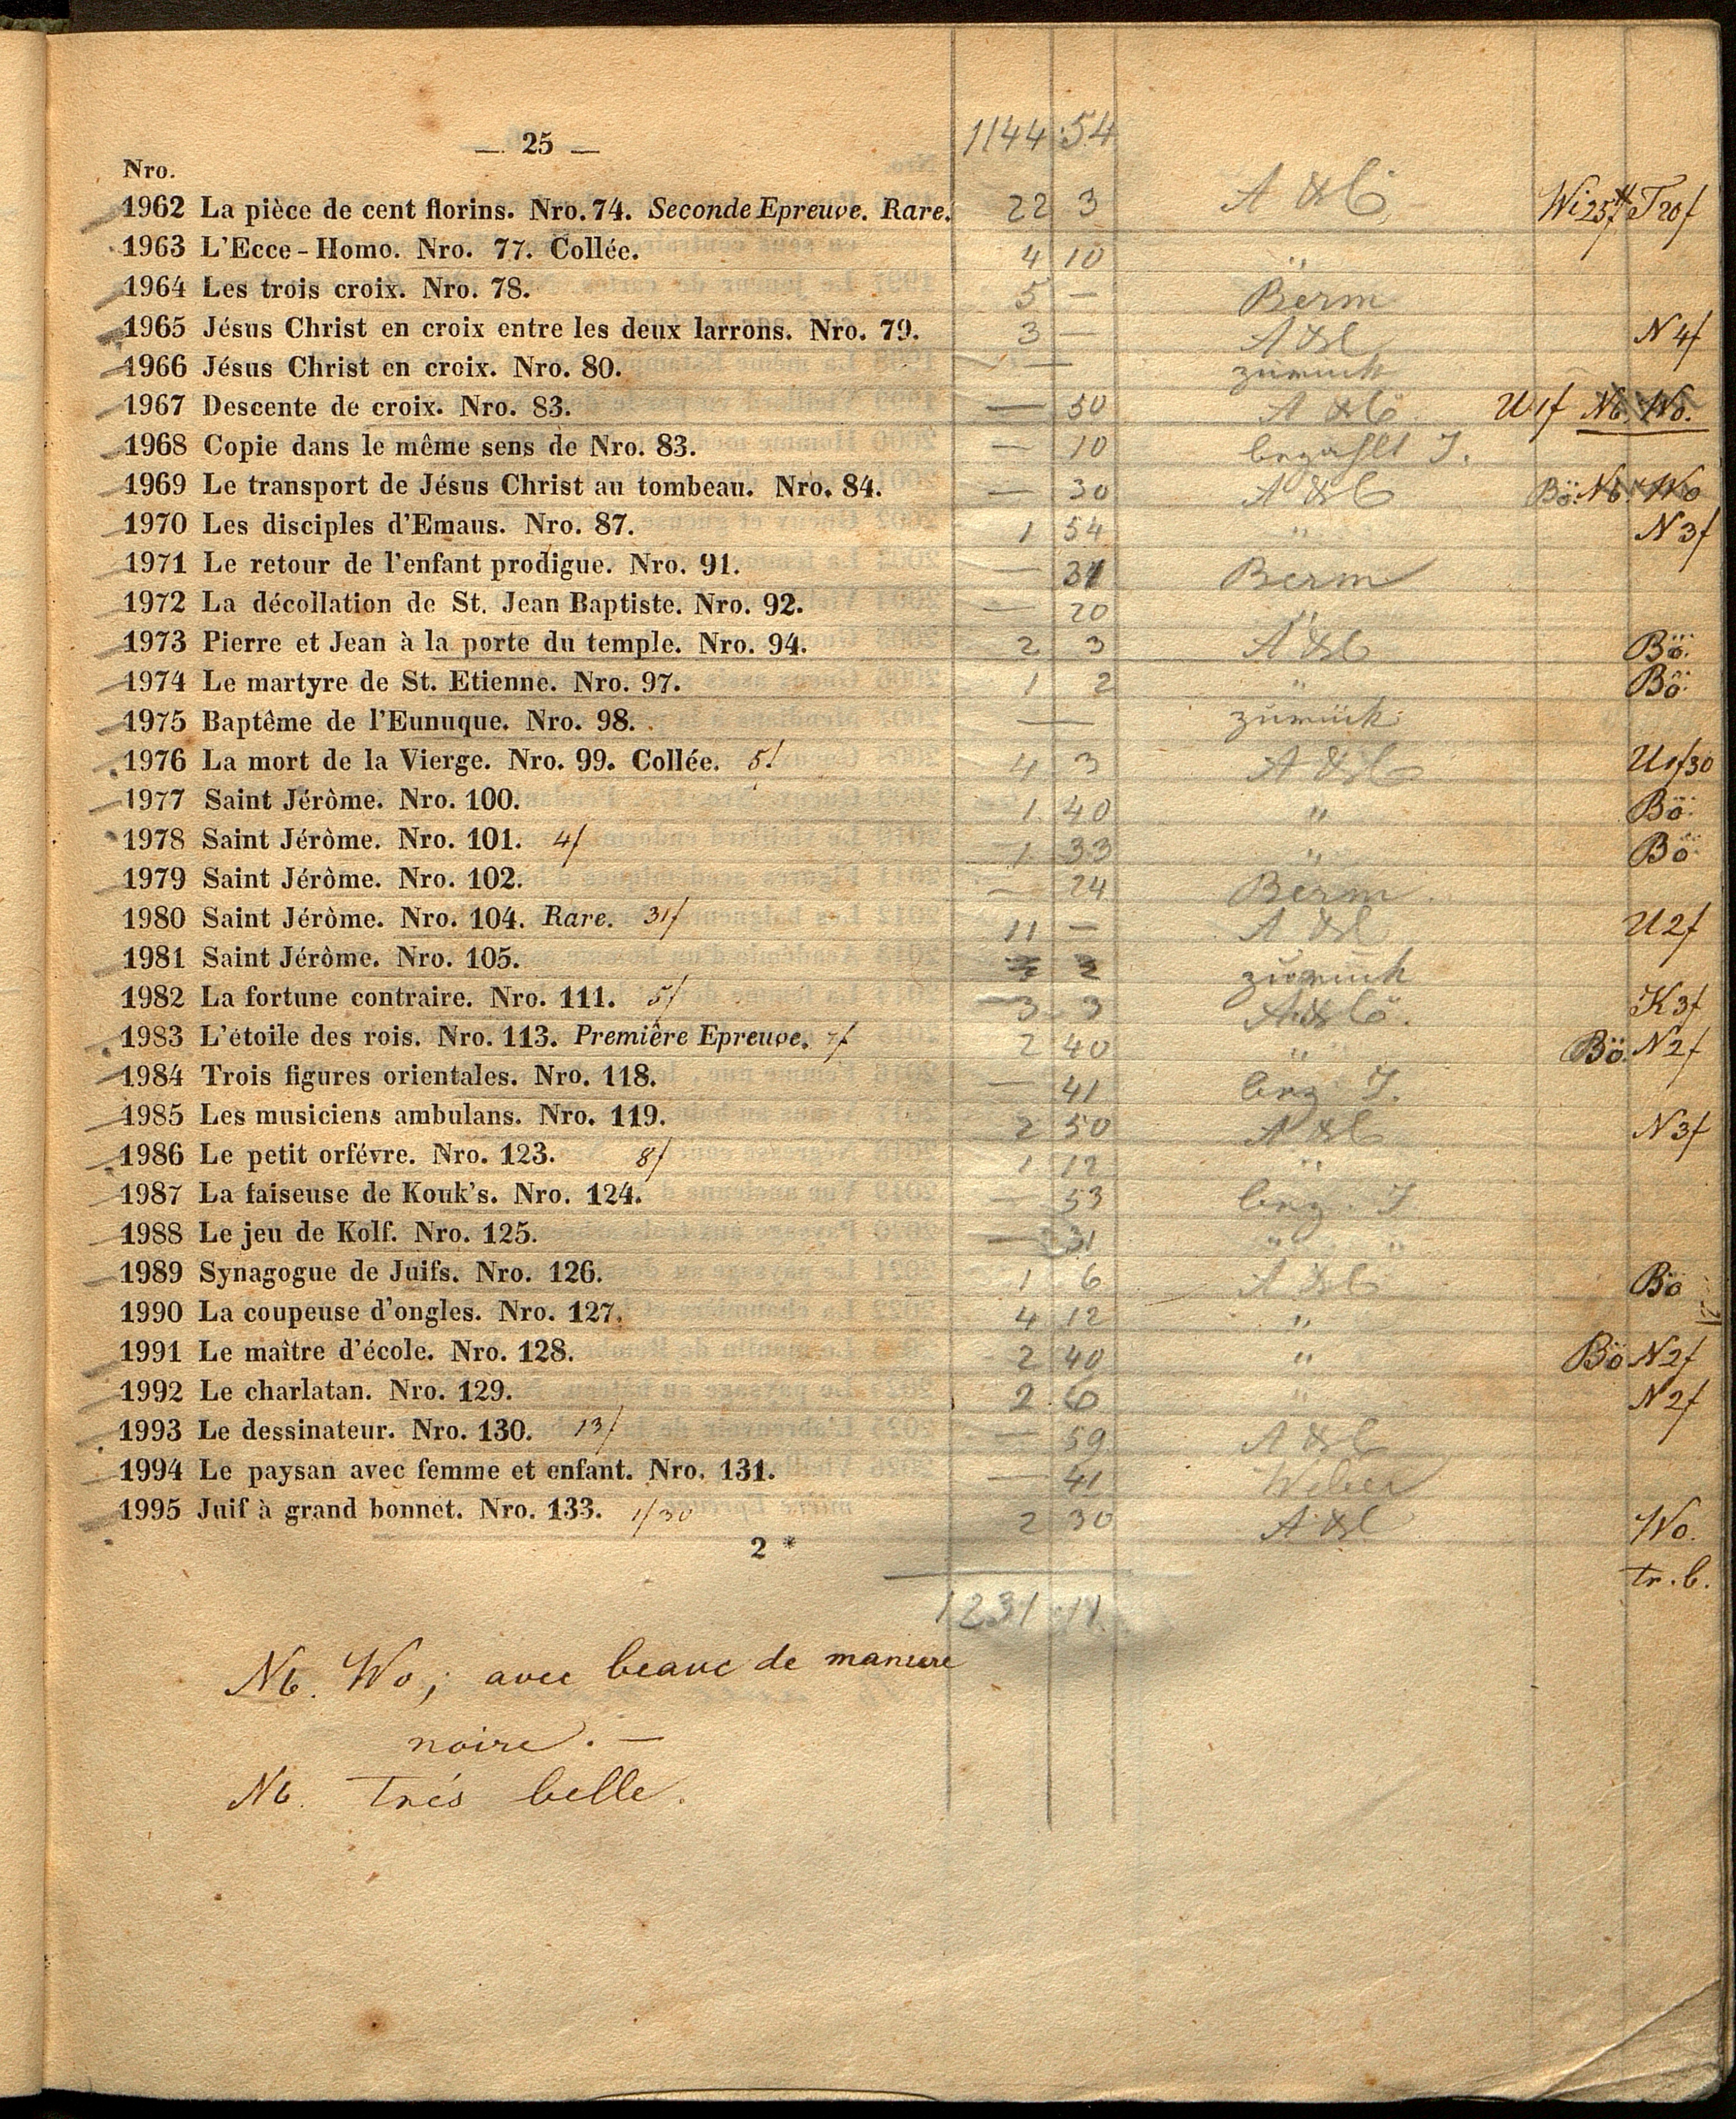 — 25 — 1144 54
Nro.
1962 La pièce de cent florins. Nro. 74. Seconde Epreuve. Rare. 22 3 Wi 25f T 20f
1963 L'Ecce-Homo. Nro. 77. Collée. 4 10 "
1964 Les trois croix. Nro. 78. 5 — Berm
1965 Jésus Christ en croix entre les deux larrons. Nro. 79. 3 — N 4f
1966 Jésus Christ en croix. Nro. 80. — zurück
1967 Descente de croix. Nro. 83. — 50 U 1f Nb. Wo.
1968 Copie dans le même sens de Nro. 83. — 10 bezahlt J.
1969 Le transport de Jésus Christ au tombeau. Nro. 84. — 30 Bö. Nb. Wo
1970 Les disciples d'Emaus. Nro. 87. 1 54 " N 3f
1971 Le retour de l'enfant prodigue. Nro. 91. — Berm
1972 La décollation de St. Jean Baptiste. Nro. 92. — 20 "
1973 Pierre et Jean à la porte du temple. Nro. 94. 2 3 Bö.
1974 Le martyre de St. Etienne. Nro. 97. 1 2 " Bö.
1975 Baptême de l'Eunuque. Nro. 98. — zurück
1976 La mort de la Vierge. Nro. 99. Collée. 5f 4 3 U 1f30
1977 Saint Jérôme. Nro. 100. 1 40 " Bö.
1978 Saint Jérôme. Nro. 101. 4f 1 33 " Bö
1979 Saint Jérôme. Nro. 102. — 24 Berm
1980 Saint Jérôme. Nro. 104. Rare. 31f 11 — U 2f
1981 Saint Jérôme. Nro. 105. zurück
1982 La fortune contraire. Nro. 111. 5f 3 3 K 3f
1983 L'étoile des rois. Nro. 113. Première Epreuve. 7f 2 40 " Bö. N 2f
1984 Trois figures orientales. Nro. 118. — 41 bez J.
1985 Les musiciens ambulans. Nro. 119. 2 50 N 3f
1986 Le petit orfévre. Nro. 123. 8f 1 12 "
1987 La faiseuse de Kouk's. Nro. 124. — 53 bez. J
1988 Le jeu de Kolf. Nro. 125. — 31 " "
1989 Synagogue de Juifs. Nro. 126. 1 6 Bö
1990 La coupeuse d'ongles. Nro. 127. 4 12 "
1991 Le maître d'école. Nro. 128. 2 40 " Bö N 2f
1992 Le charlatan. Nro. 129. 2 6 " N 2f
1993 Le dessinateur. Nro. 130. 13f — 59
1994 Le paysan avec femme et enfant. Nro. 131. — 41 Weber
1995 Juif à grand bonnet. Nro. 133. 1f30 2 30 Wo.
2 * tr. b.
1231 11
Nb. Wo; avec beauc de maniere
noire. —
Nb. Trés belle.